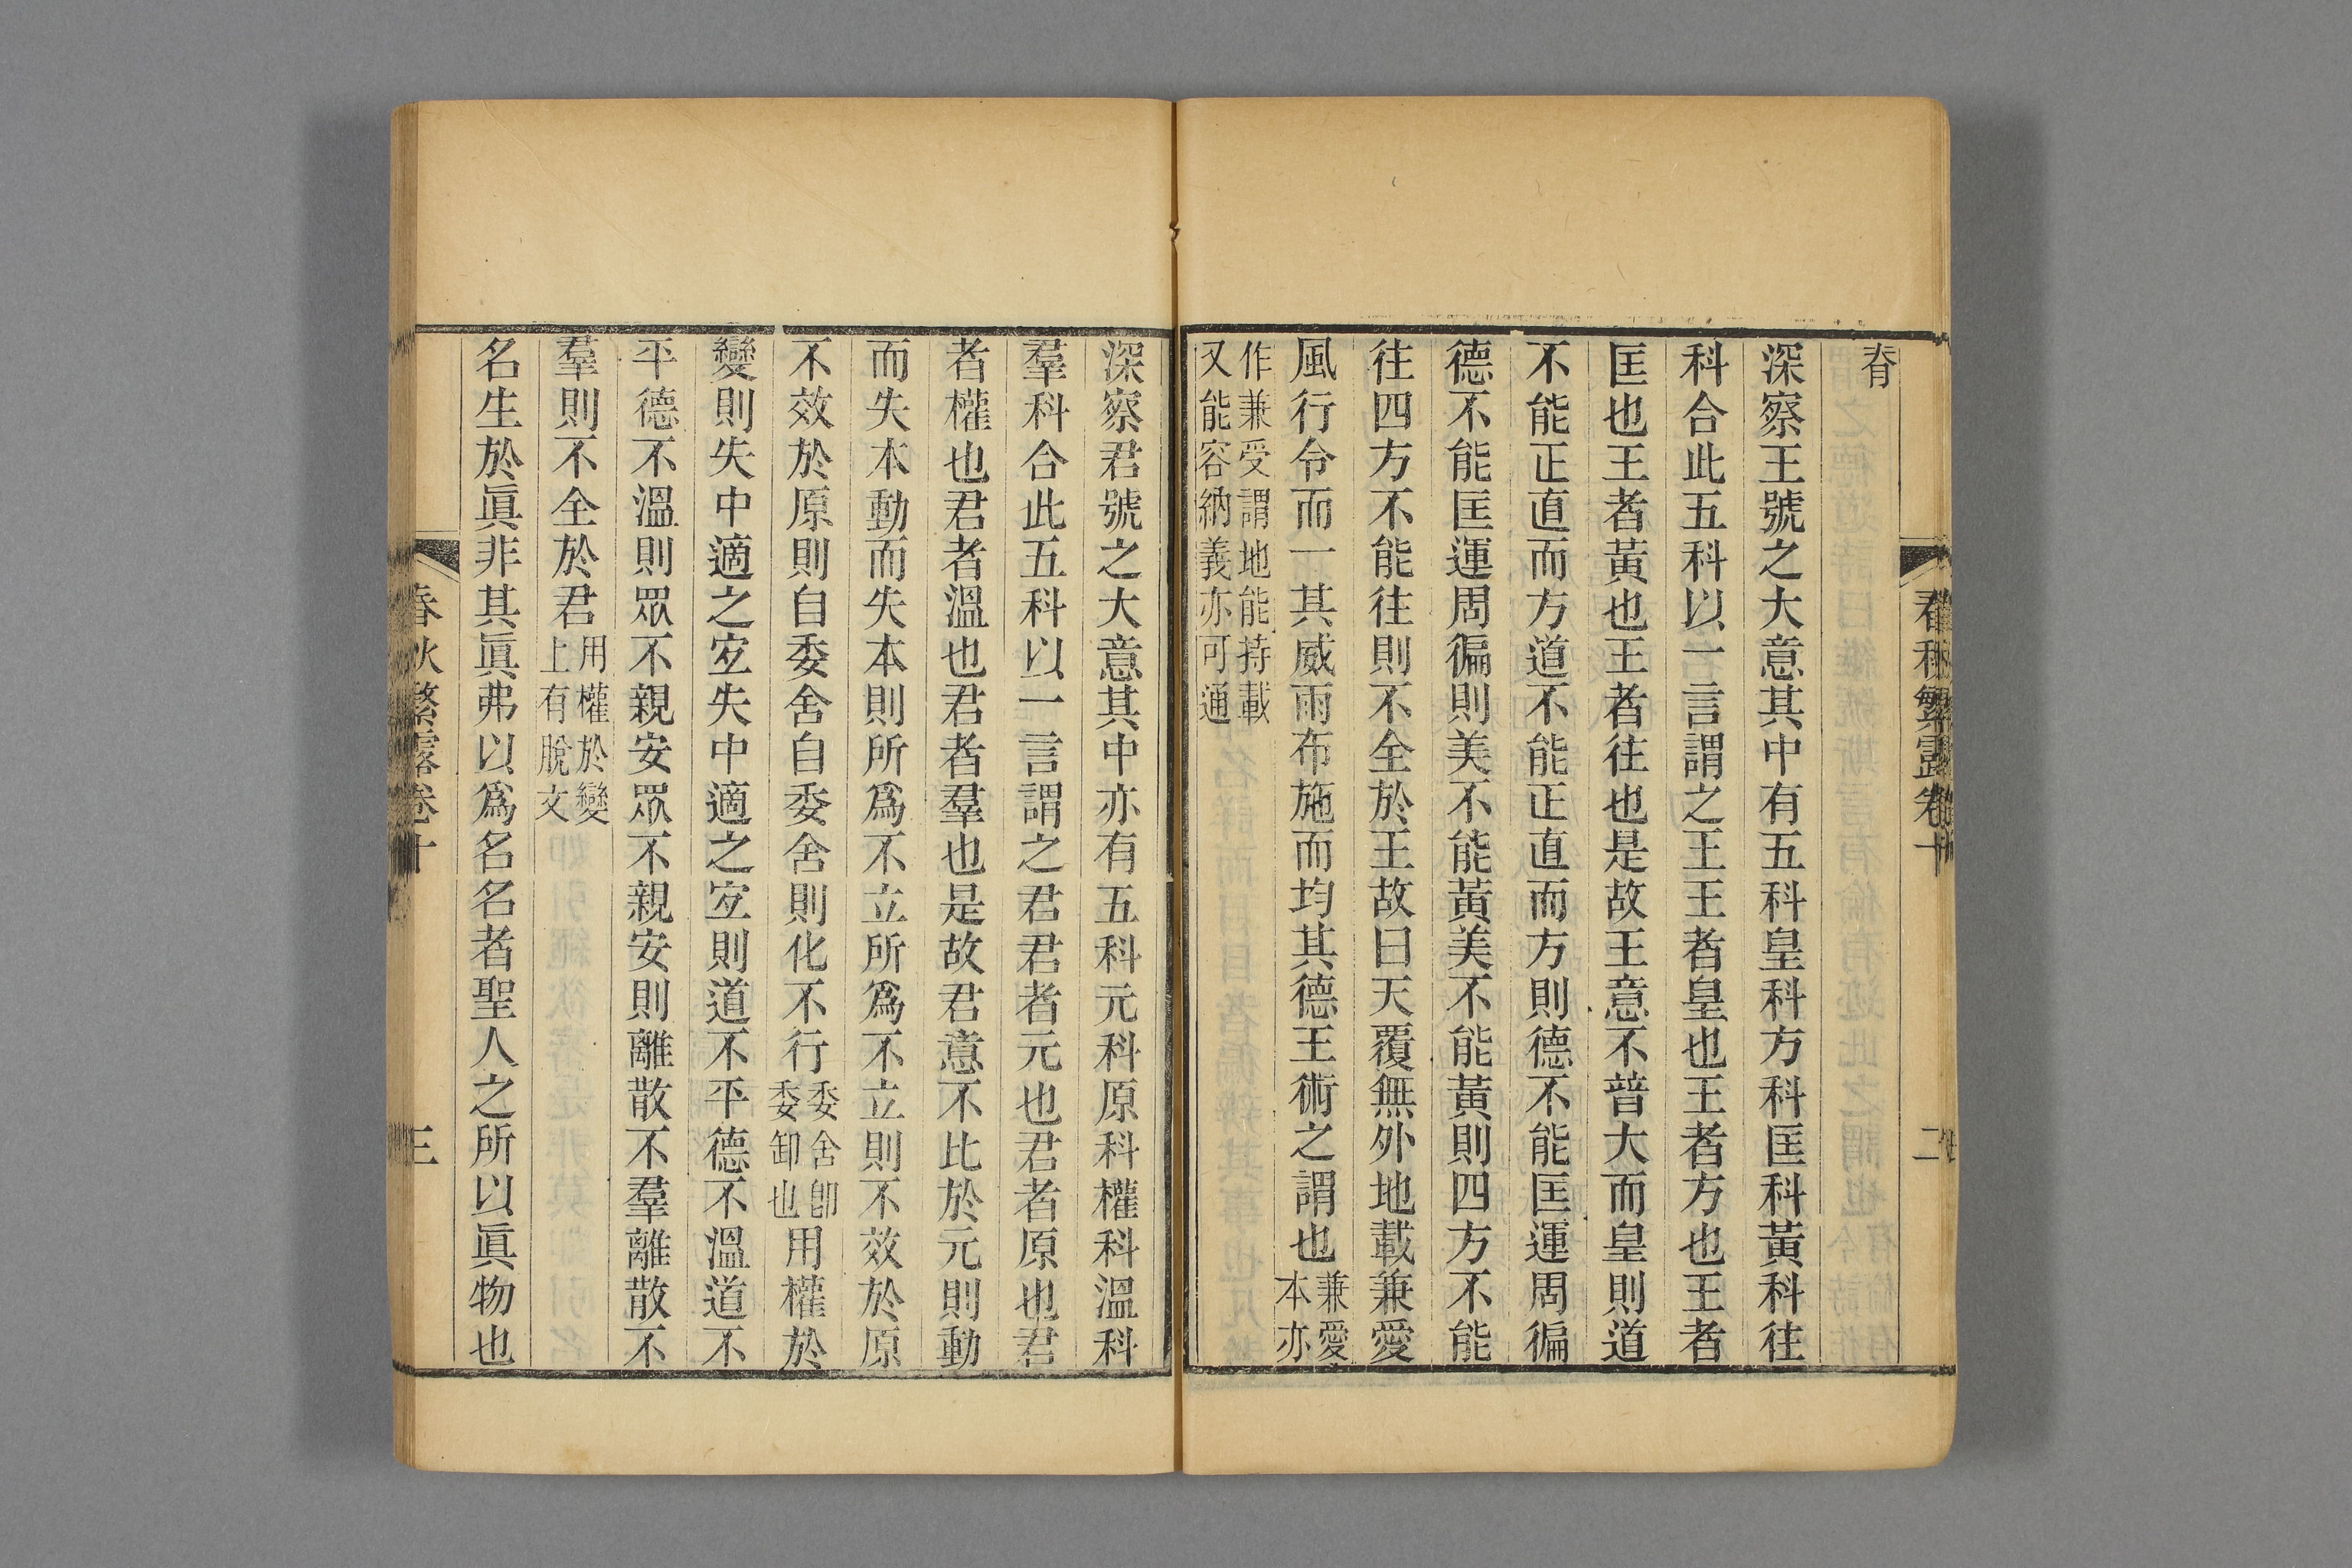 脊
深察王號之大意其中有五科皇科方科匡科黃科往
科合此五科以一言謂之王王者皇也王者方也王者
匡也王者黃也王者往也是故王意不普大而皇則道
不能正直而方道不能正直而方則德不能匡運周徧
德不能匡運周徧則美不能黃美不能黃則四方不能
往四方不能往則不全於王故曰天覆無外地載兼愛
風行令而一其威雨布施而均其德王術之謂也兼愛本亦
作兼受謂地能持載
又能容納義亦可通
春秋繁露卷十
二
深察君號之大意其中亦有五科元科原科權科溫科
羣科合此五科以一言謂之君君者元也君者原也君
者權也君者溫也君者羣也是故君意不比於元則動
而失本動而失本則所爲不立所爲不立則不效於原
不效於原則自委舍自委舍則化不行委舍卽委卸也用權於
變則失中適之宐失中適之宐則道不平德不溫道不
平德不溫則眾不親安眾不親安則離散不羣離散不
羣則不全於君用權於變上有脫文
名生於眞非其眞弗以爲名名者聖人之所以眞物也
春秋繁露卷十
三